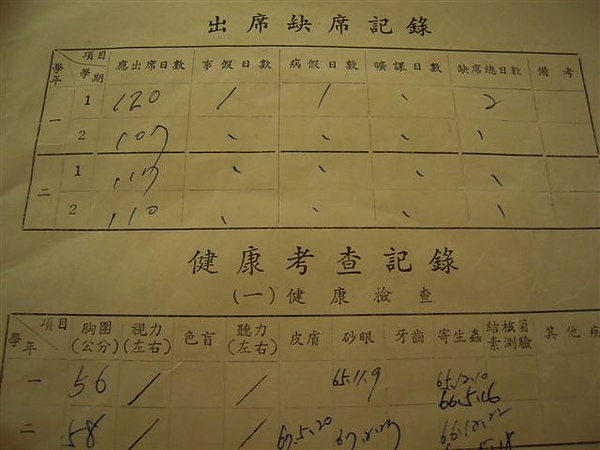 出席缺席記錄
項目 學期 學年 應出席日數 事假日數 病假日數 曠課日數 缺席總日數 備考
一 1 120 1 1 、 2
2 107 、 、 、 、
二 1 117 、 、 、 、
2 110 、 、 、 、
健康考查記錄
(一)健康檢查
項目 學年 胸圍(公分) 視力(左右) 色盲 聽力(左右) 皮膚 砂眼 牙齒 寄生蟲 結核菌素測驗 其他疾
一 56 / / 65.11.9 65.12.10
66.5.16
二 58 / / 67.5.20 66.12.22